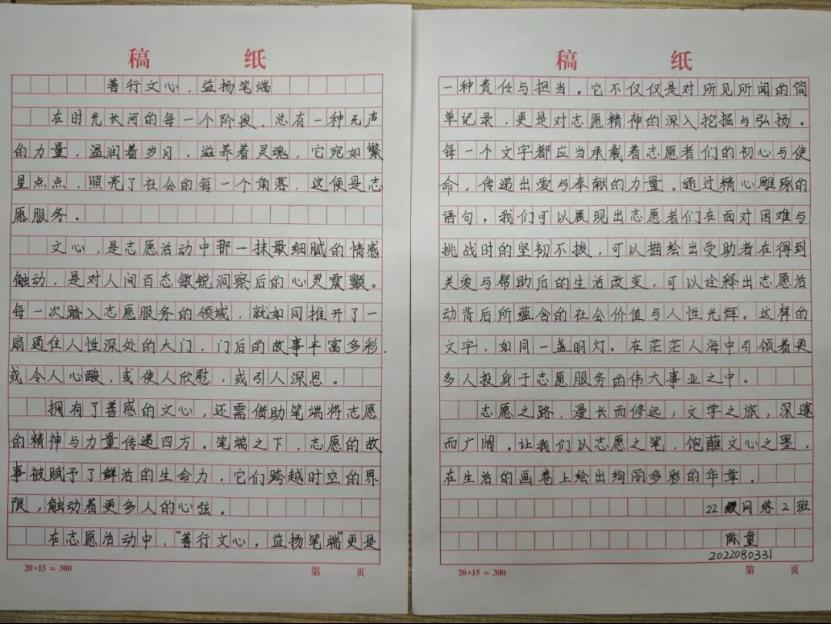 稿 纸
善行文心，益扬笔端
在时光长河的每一个阶段，总有一种无声
的力量，温润着岁月，滋养着灵魂，它宛如繁
星点点，照亮了社会的每一个角落，这便是志
愿服务。
文心，是志愿活动中那一抹最细腻的情感
触动，是对人间百态敏锐洞察后的心灵震颤。
每一次踏入志愿服务的领域，就如同推开了一
扇通往人性深处的大门，门后的故事丰富多彩，
或令人心酸，或使人欣慰，或引人深思。
拥有了善感的文心，还需借助笔端将志愿
的精神与力量传递四方。笔端之下，志愿的故
事被赋予了鲜活的生命力，它们跨越时空的界
限，触动着更多人的心弦。
在志愿活动中，“善行文心，益扬笔端”更是
20×15＝300 第 页
稿 纸
一种责任与担当。它不仅仅是对所见所闻的简
单记录，更是对志愿精神的深入挖掘与弘扬。
每一个文字都应当承载着志愿者们的初心与使
命，传递出爱与奉献的力量。通过精心雕琢的
语句，我们可以展现出志愿者们在面对困难与
挑战时的坚韧不拔，可以描绘出受助者在得到
关爱与帮助后的生活改变，可以诠释出志愿活
动背后所蕴含的社会价值与人性光辉。这样的
文字，如同一盏明灯。在茫茫人海中引领着更
多人投身于志愿服务的伟大事业之中。
志愿之路，漫长而修远；文学之旅，深邃
而广阔。让我们以志愿之笔，饱蘸文心之墨，
在生活的画卷上绘出绚丽多彩的华章。
22级网络2班
陈童
2022080331
20×15＝300 第 页